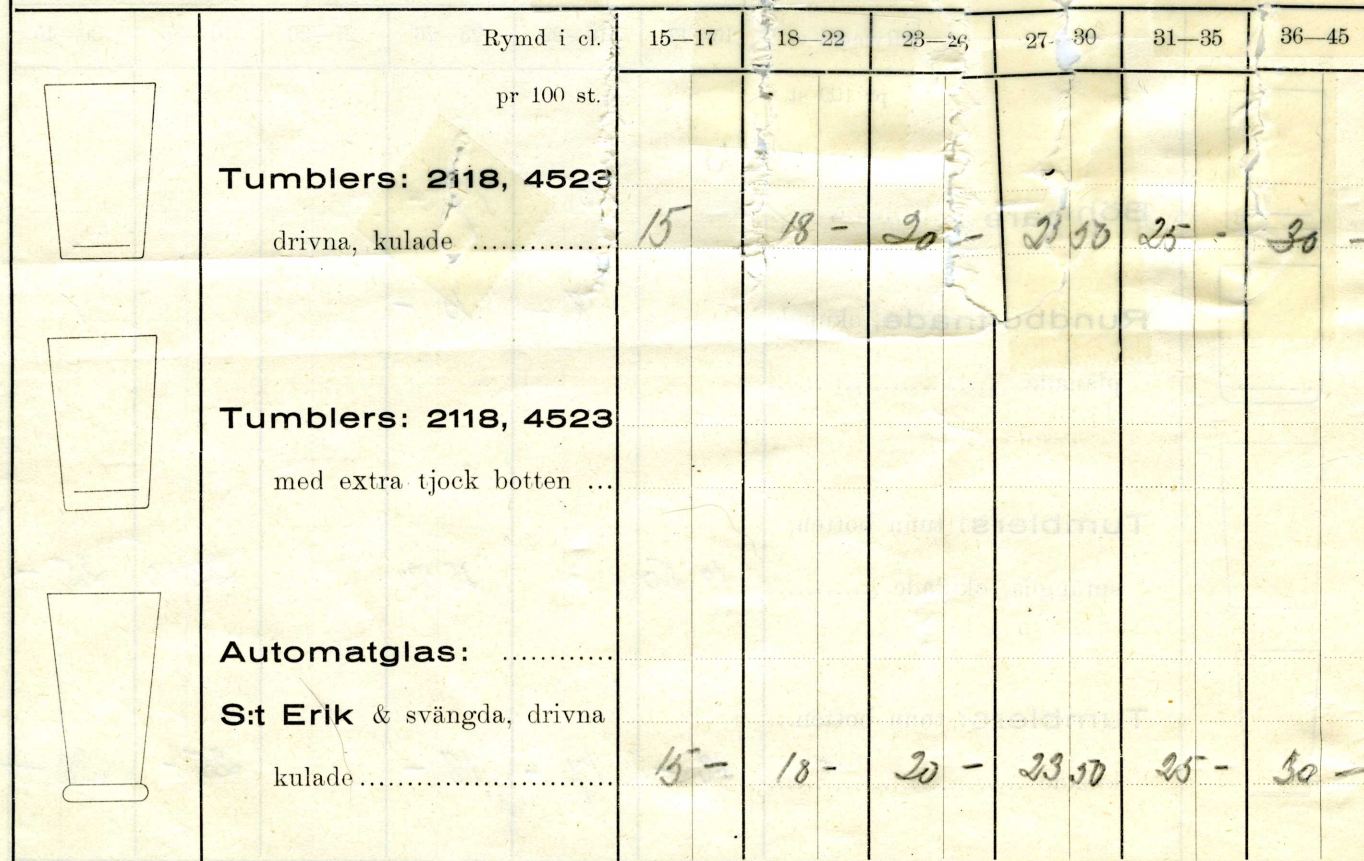 Rymd i cl. 15—17 18—22 23—26 27-30 31—35 36—45
pr 100 st.
Tumblers: 2118, 4523
drivna, kulade ............... 15 18 - 20 - 23 50 25 - 30 -
Tumblers: 2118, 4523
med extra tjock botten ...
Automatglas: ............
S:t Erik & svängda, drivna
kulade........................... 15 - 18 - 20 - 23 50 25 - 30 -